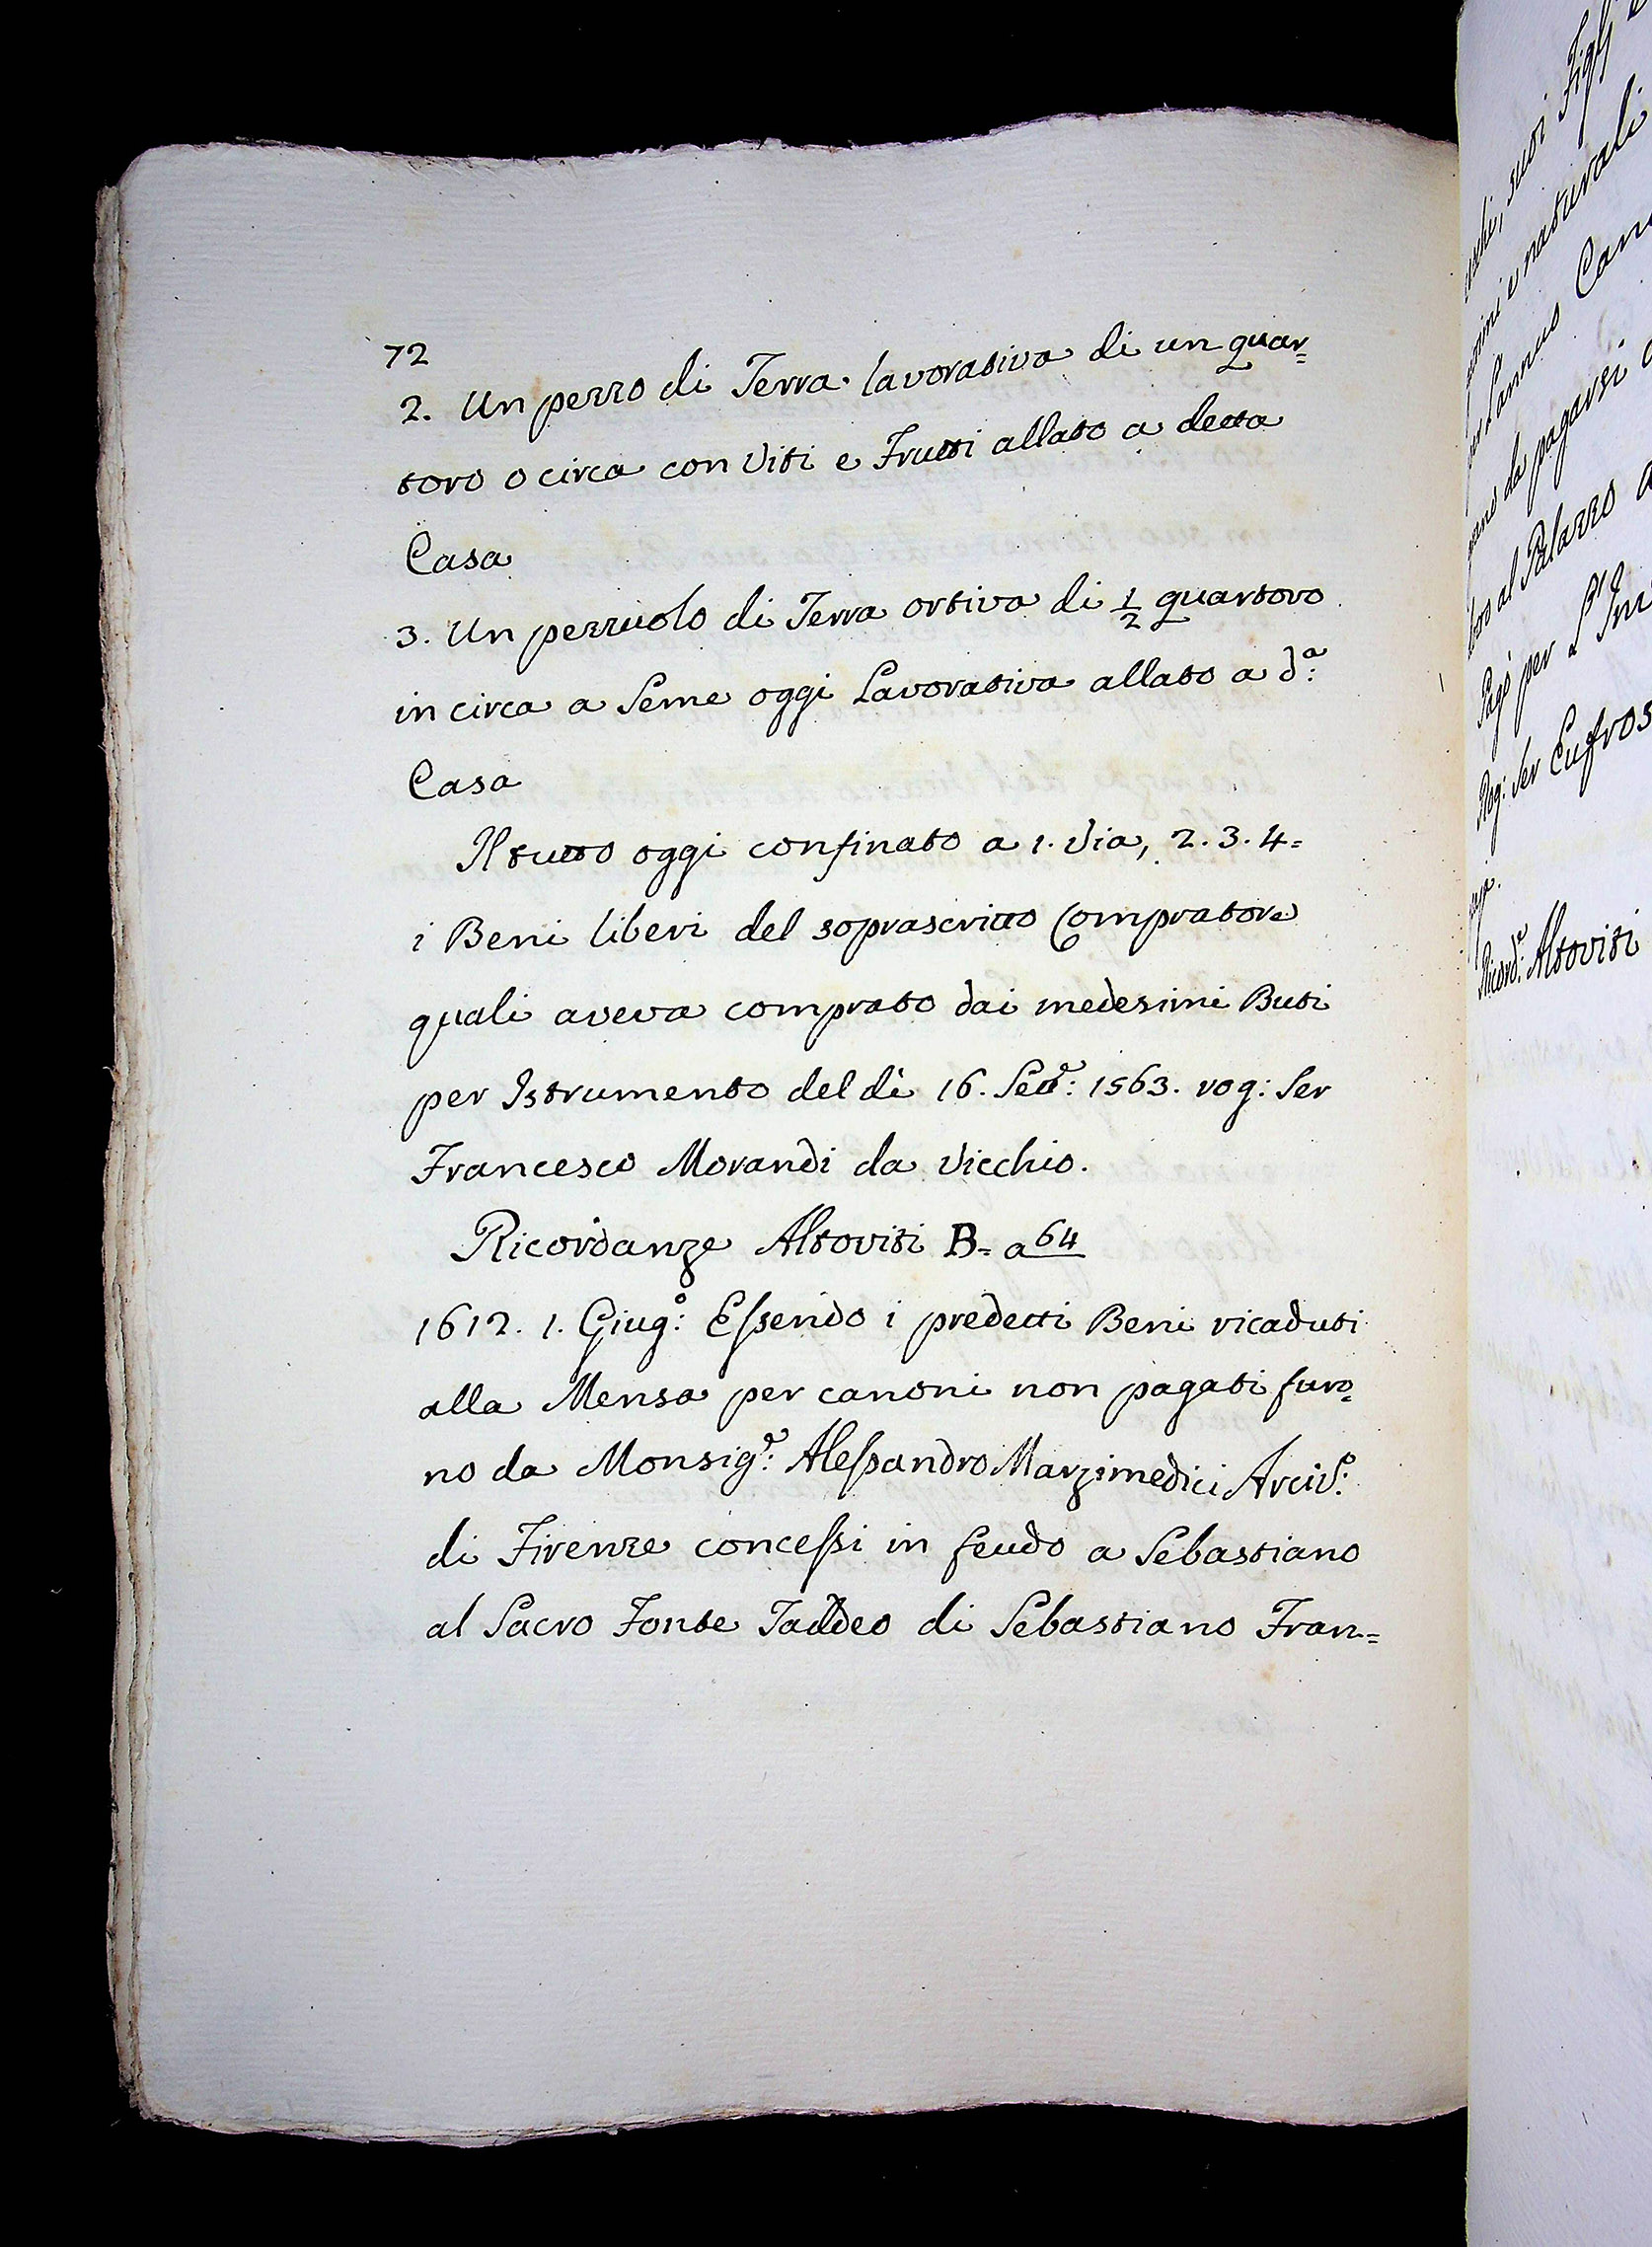 72
2. Un pezzo di Terra lavorativa di un quar=
toro o circa con Viti e Frutti allato a detta
Casa
3. Un pezzuolo di Terra ortiva di 1/2 quartoro
in circa a Seme oggi Lavorativa allato a d.ª
Casa
Il tutto oggi confinato a 1. Via, 2. 3. 4=
i Beni liberi del soprascritto Compratore
quali aveva comprato dai medesimi Buti
per Istrumento del dì 16. Sett.e: 1563. rog: Ser
Francesco Morandi da Vicchio.
Ricordanze Altoviti B= a 64
1612. 1. Giug.o: Essendo i predetti Beni ricaduti
alla Mensa per canoni non pagati furo=
no da Monsig.e: Alessandro Marzimedici Arciv.o:
di Firenze concessi in feudo a Sebastiano
al Sacro Fonte Taddeo di Sebastiano Fran=
suoi Figli
e naturali
Lannuo
da pagarsi
al Palazzo
Pagò per L'
Rog: Ser Eufros
Ricord.e: Altoviti